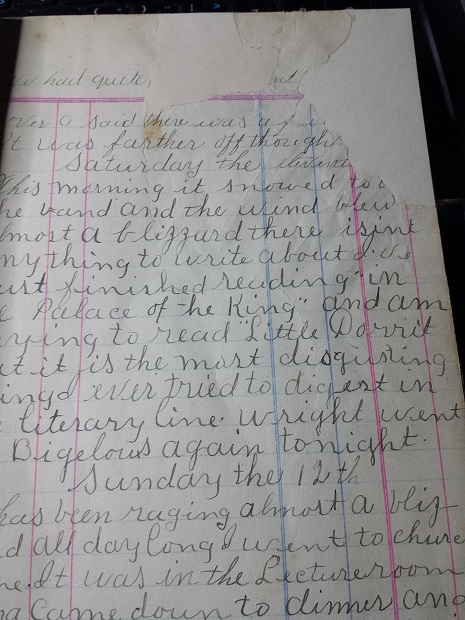 had quite,
over & said there was a
It was further off though
Saturday the
This morning it snowed to
the band and the wind blew
almost a blizzard there isint
anything to write about
just finished reading "in
the Palace of the King" and am
trying to read "Little Dorrit
but it is the most disgusting
ever tried to digest in
literary line. Wright went
Bigelows again tonight.
Sunday the 12th
has been raging almost a bliz-
all day long I went to
It was in the Lecture room
came down to dinner and